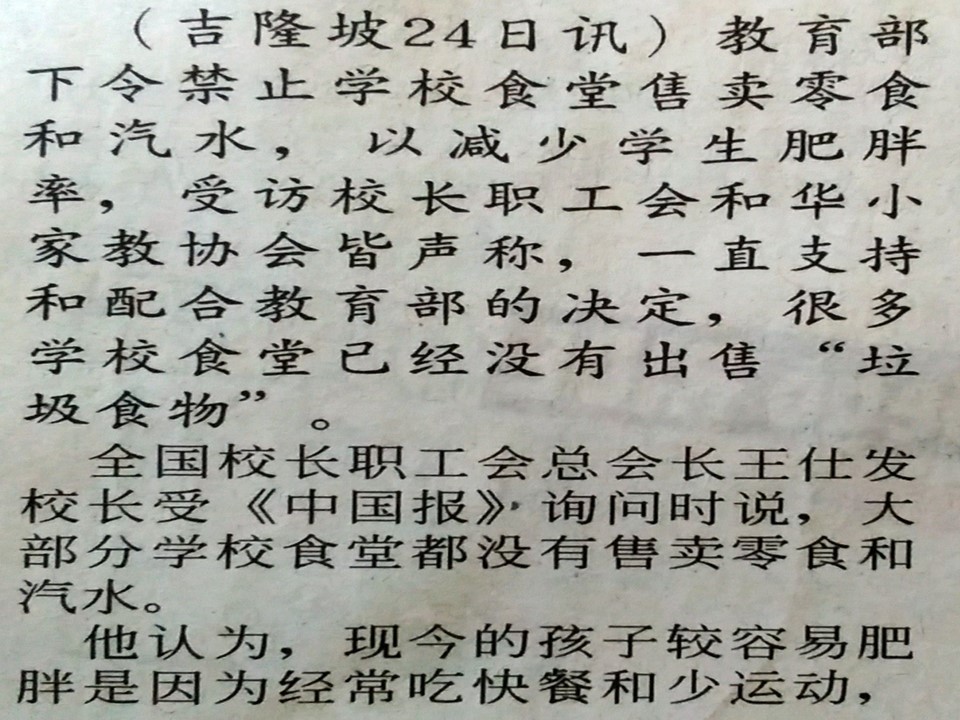 （吉隆坡24日讯）教育部
下令禁止学校食堂售卖零食
和汽水，以减少学生肥胖
率，受访校长职工会和华小
家教协会皆声称，一直支持
和配合教育部的决定，很多
学校食堂已经没有出售“垃
圾食物”。
全国校长职工会总会长王仕发
校长受《中国报》询问时说，大
部分学校食堂都没有售卖零食和
汽水。
他认为，现今的孩子较容易肥
胖是因为经常吃快餐和少运动，